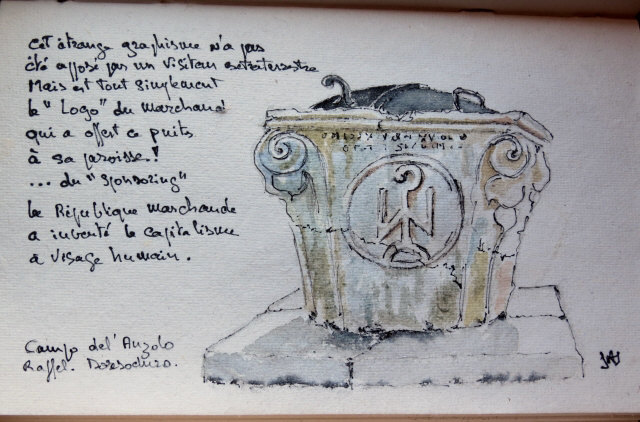 Cet étrange graphisme n'a pas
été apposé par un visiteur extraterrestre
Mais est tout simplement
le "Logo" du marchand
qui a offert ce puits
à sa paroisse!
... du "Sponsoring"
la République marchande
a inventé le capitalisme
à visage humain.
Campo del'Anzolo
Raffel. Dorsoduro.